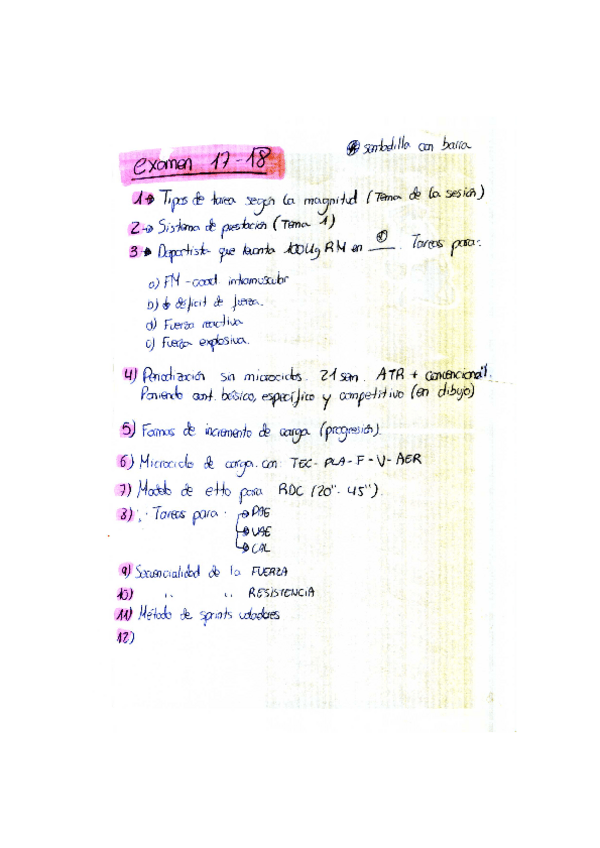 Examen 17-18
⊛ sentadilla con barra
1→ Tipos de tarea según la magnitud (Tema de la sesión)
2→ Sistema de prestación (Tema 1)
3→ Deportista que levanta 100Kg RM en ⊛___. Tareas para:
a) FM - coord. intramuscular
b) ↓ déficit de fuerza.
d) Fuerza reactiva
c) Fuerza explosiva.
4) Periodización sin microciclos. 21 sem. ATR + convencional.
Poniendo cont. básico, específico y competitivo (en dibujo)
5) Formas de incremento de carga (progresión).
6) Microciclo de carga con: TEC - PLA - F - V - AER
7) Modelo de etto para RDC (20''- 45'').
8) · Tareas para: → PAE
→ UAE
→ CAL
9) Secuencialidad de la FUERZA
10) '' '' RESISTENCIA
11) Método de sprints voladores
12)